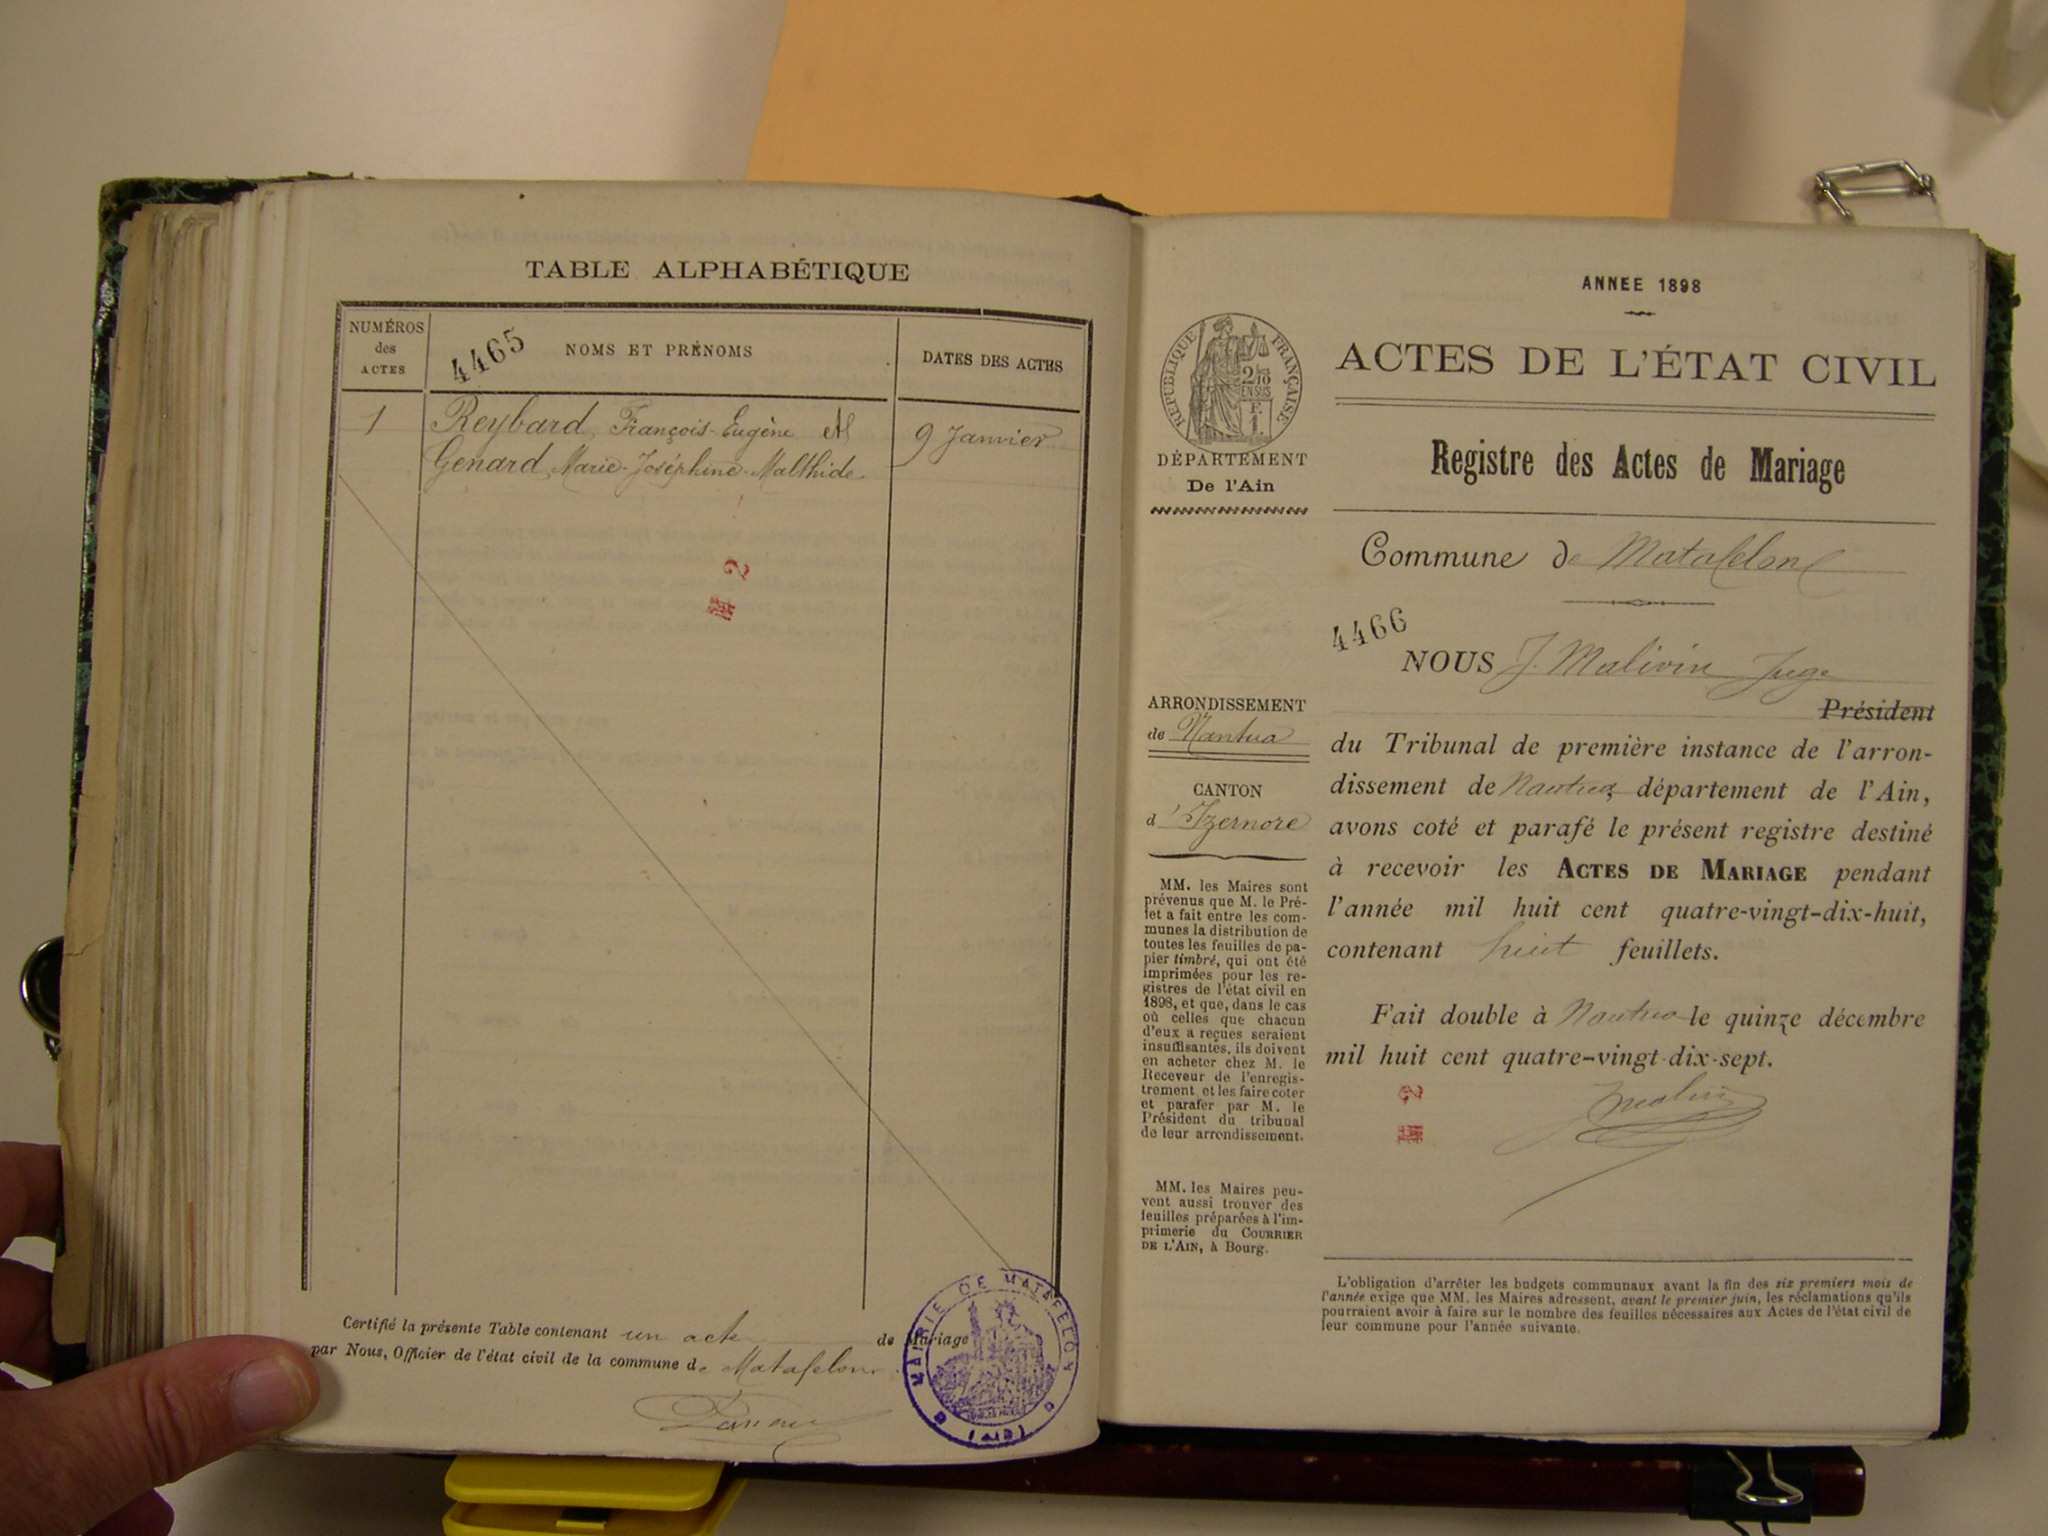 TABLE ALPHABÉTIQUE
NUMÉROS
des
ACTES
4465
NOMS ET PRÉNOMS
DATES DES ACTES
1
Reybard, François-Eugène et
9 Janvier
Genard Marie-Joséphine-Malthide
2
Certifié la présente Table contenant un acte de Mariage
par Nous, Officier de l'état civil de la commune de Matafelon
MAIRIE DE MATAFELON
(AIN)
ANNEE 1898
RÉPUBLIQUE FRANÇAISE
2/10 EN SUS
ACTES DE L'ÉTAT CIVIL
Registre des Actes de Mariage
DÉPARTEMENT
De l'Ain
Commune de Matafelon
4466
NOUS J. Malivin Juge
Président
ARRONDISSEMENT
de Nantua
CANTON
d'Izernore
du Tribunal de première instance de l'arron-
dissement de Nantua, département de l'Ain,
avons coté et parafé le présent registre destiné
à recevoir les ACTES DE MARIAGE pendant
l'année mil huit cent quatre-vingt-dix-huit,
contenant huit feuillets.
Fait double à Nantua le quinze décembre
mil huit cent quatre-vingt-dix-sept.
2
MM. les Maires sont
prévenus que M. le Pré-
fet a fait entre les com-
munes la distribution de
toutes les feuilles de pa-
pier timbré, qui ont été
imprimées pour les re-
gistres de l'état civil en
1898, et que, dans le cas
où celles que chacun
d'eux a reçues seraient
insuffisantes, ils doivent
en acheter chez M. le
Receveur de l'enregis-
trement et les faire coter
et parafer par M. le
Président du tribunal
de leur arrondissement.
MM. les Maires peu-
vent aussi trouver des
feuilles préparées à l'im-
primerie du COURRIER
DE L'AIN, à Bourg.
L'obligation d'arrêter les budgets communaux avant la fin des six premiers mois de
l'année exige que MM. les Maires adressent, avant le premier juin, les réclamations qu'ils
pourraient avoir à faire sur le nombre des feuilles nécessaires aux Actes de l'état civil de
leur commune pour l'année suivante.